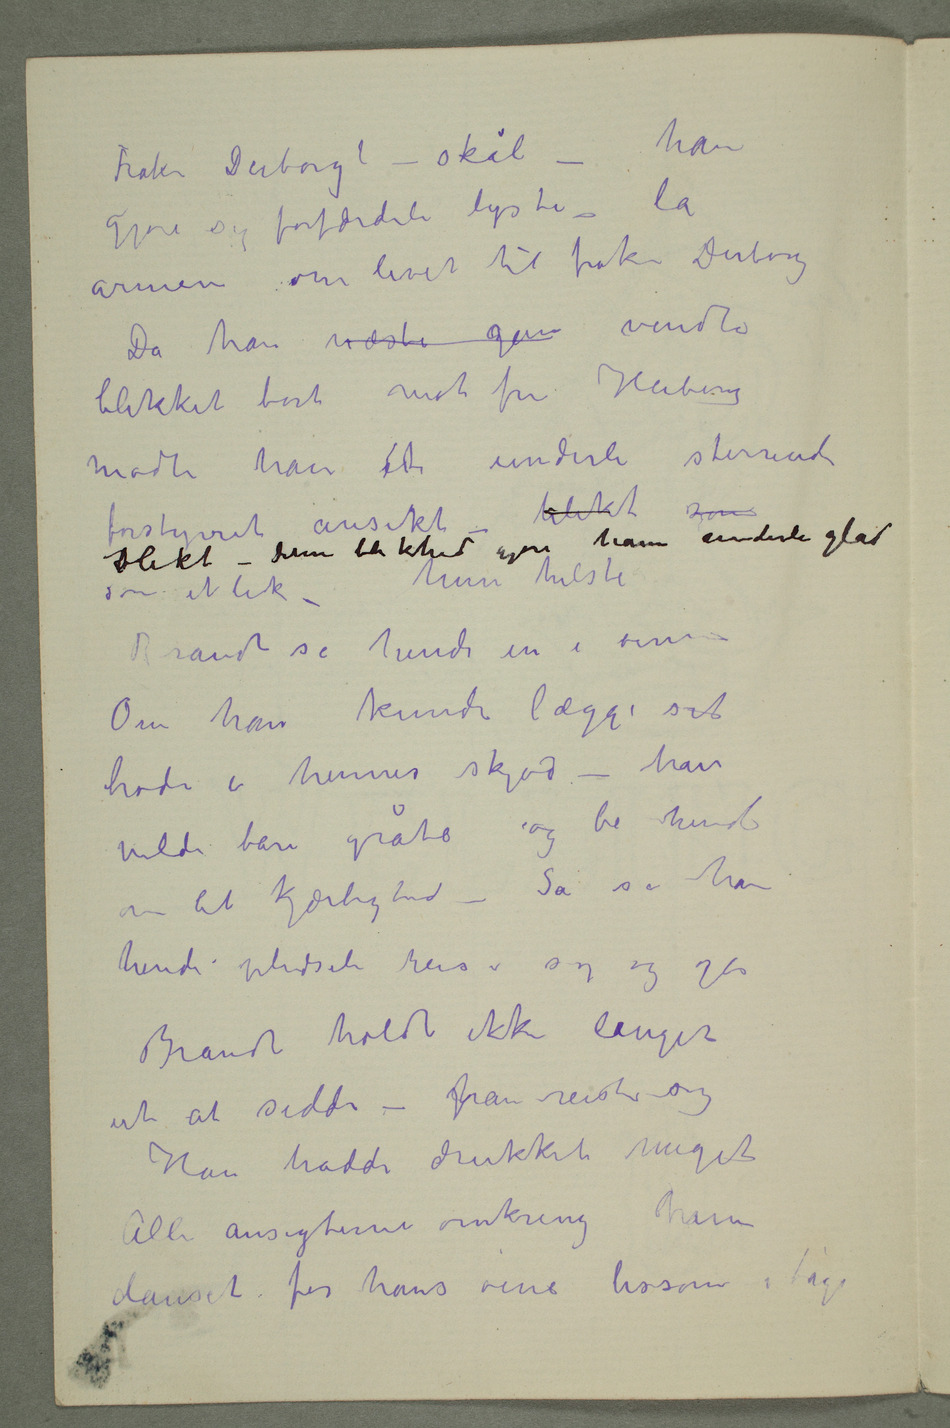 Frøken Derborg! – skål – han
gjøre sig forfærdeli lysti – la
armen om livet til frøken Derborg
Da han næste gan vendte
blikket bort mot fru Heiberg
mødte han et underli stirrende
forstyrret ansikt – blekt som
Blekt – denne blekhed gjore ham underli glad
som et lik – hun hilste
Brandt så hende in i øine
Om han kunde lægge sit
hode i hennes skjød – han
vilde bare gråte og be hende
om lit kjærlighed – Så så han
hende pludseli reise sig og gå
Brandt holdt ikke længer
ut at sidde – han reiste sig
Han hadde drukket meget
Alle ansigterne omkring ham
danset for hans øine lissom i tåge